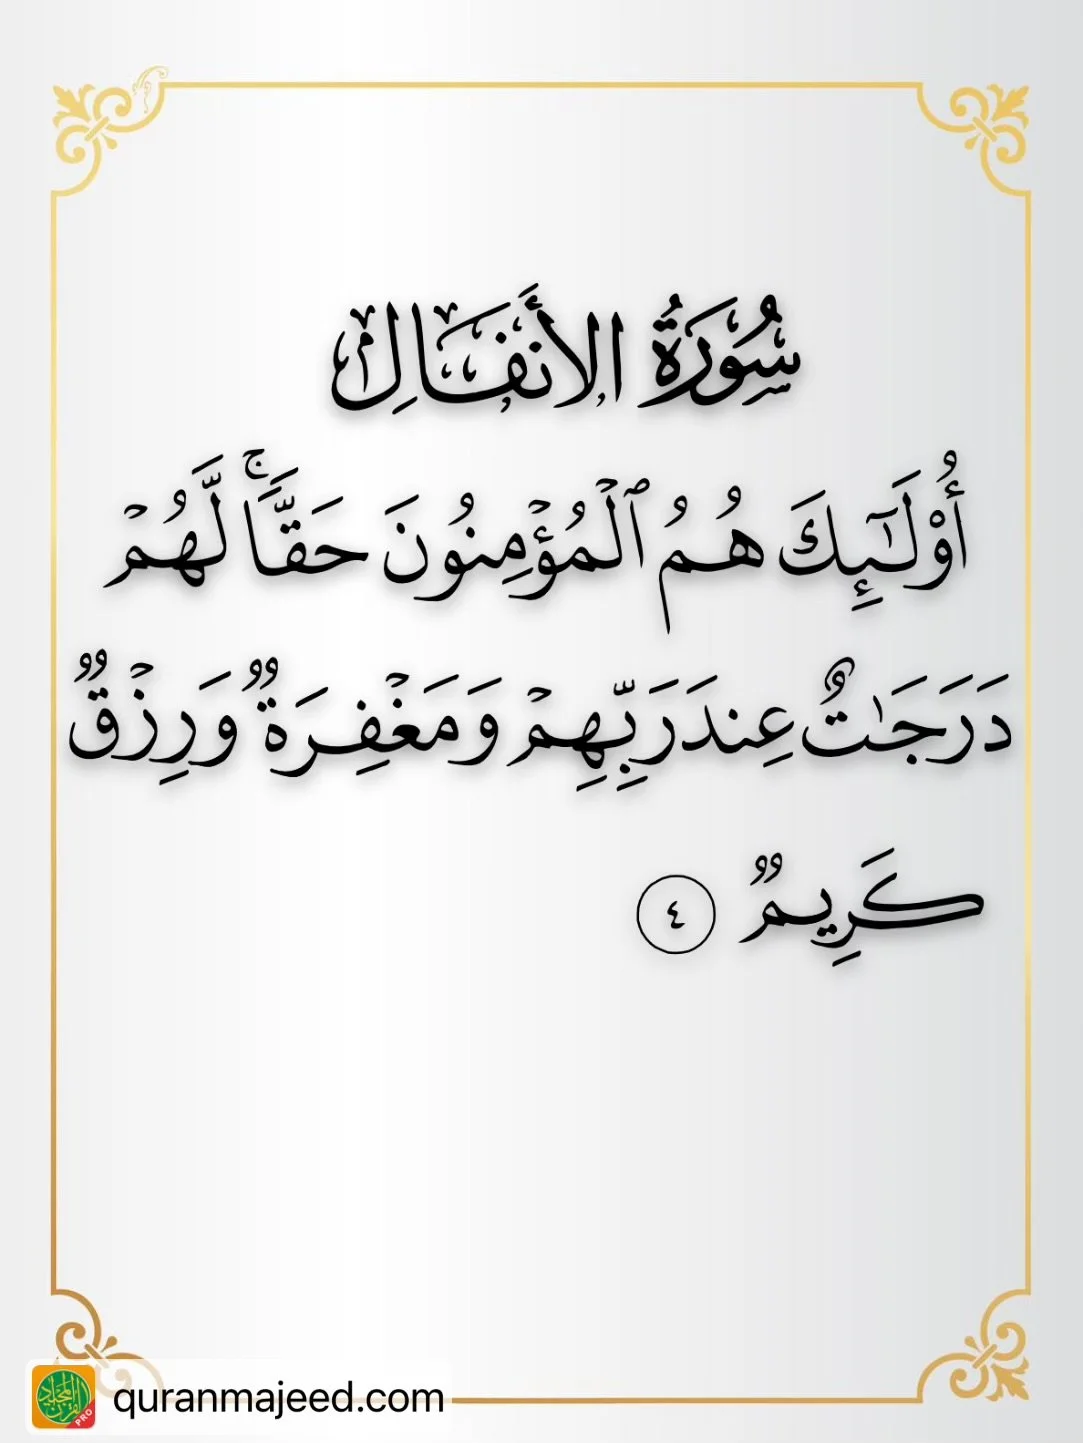 سُورَةُ الأَنفَالِ
أُوْلَـٰٓئِكَ هُمُ ٱلْمُؤْمِنُونَ حَقًّاۚ لَّهُمْ
دَرَجَـٰتٌ عِندَ رَبِّهِمْ وَمَغْفِرَةٌ وَرِزْقٌ
كَرِيمٌ ٤
quranmajeed.com